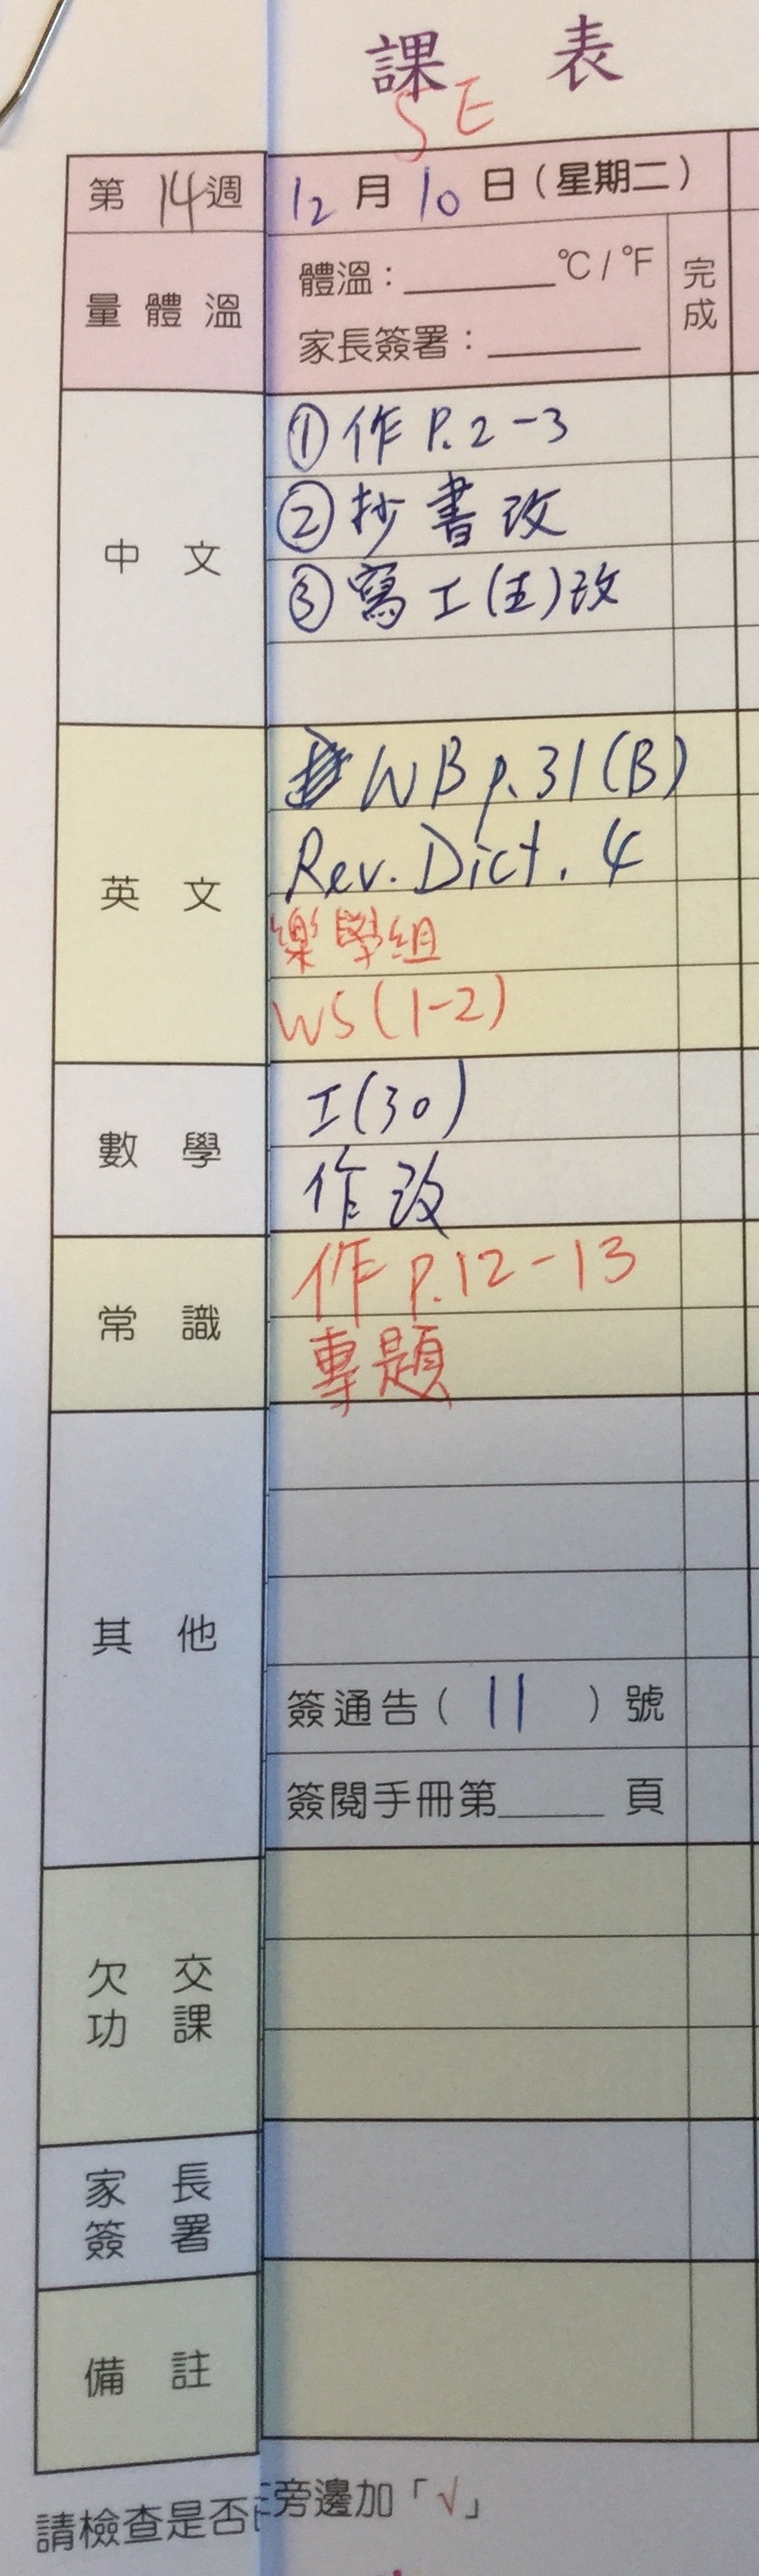 課 表
SE
第 14 週 12 月 10 日 ( 星期二 )
量 體 溫 體溫：______ °C / °F 完成
家長簽署：______
中 文 ① 作 P. 2 - 3
② 抄書改
③ 寫工(五)改
英 文 WB p. 31 (B)
Rev. Dict. 4
樂學組
WS (1-2)
數 學 工(30)
作改
常 識 作 p. 12 - 13
專題
其 他
簽通告 ( 11 ) 號
簽閱手冊第______ 頁
欠 交
功 課
家 長
簽 署
備 註
請檢查是否 旁邊加「√」